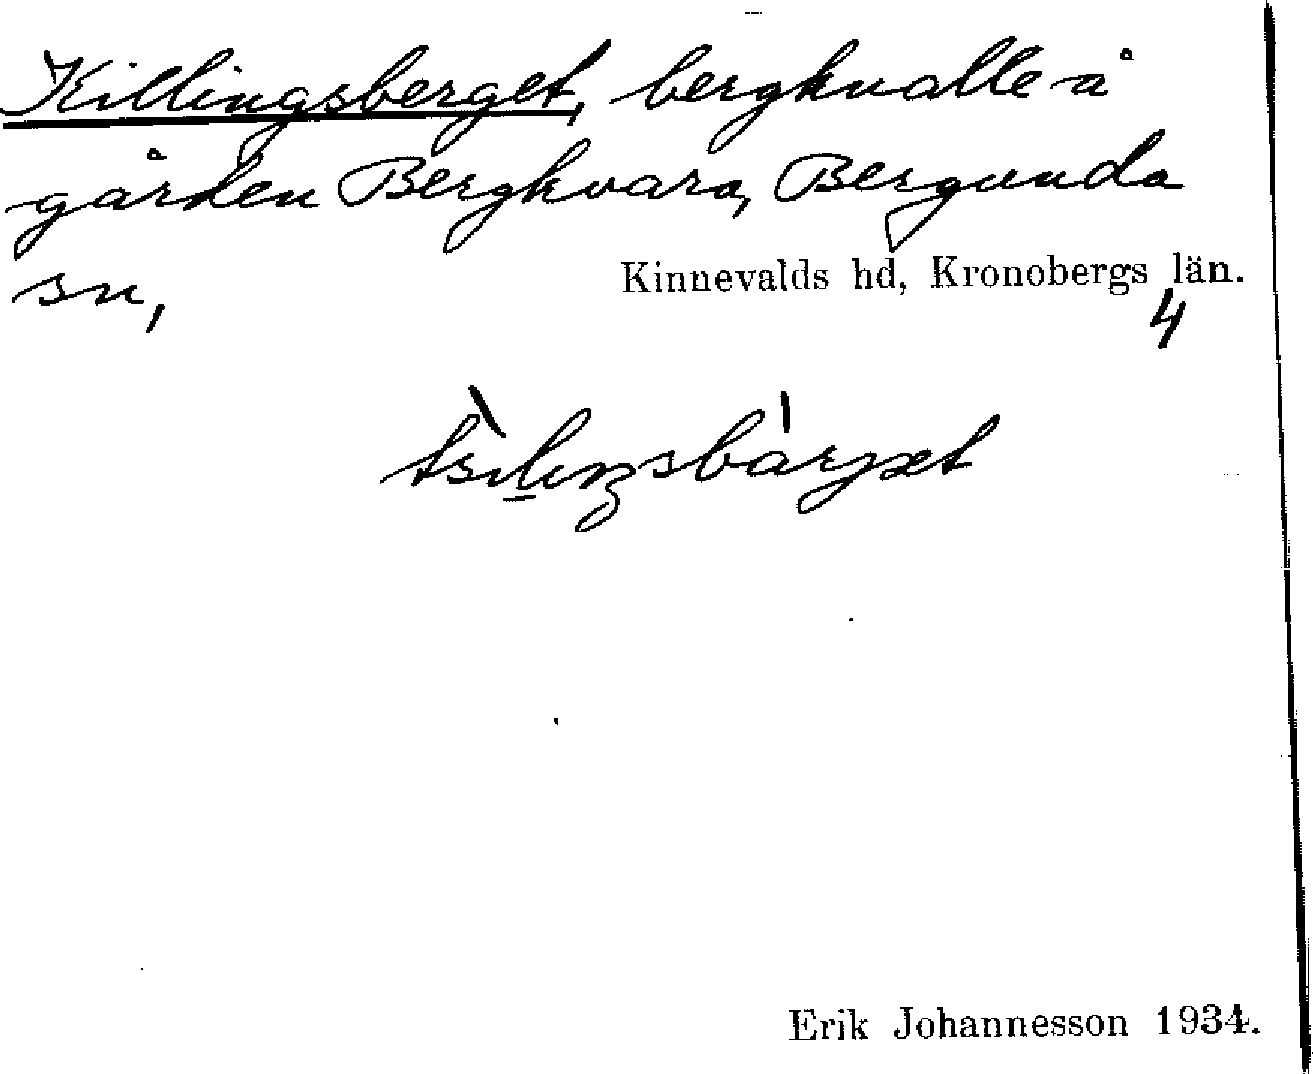 Killingsberget, bergknalle å
gården Bergkvara, Bergunda
sn,
Kinnevalds hd, Kronobergs län.
4
Erik Johannesson 1934.